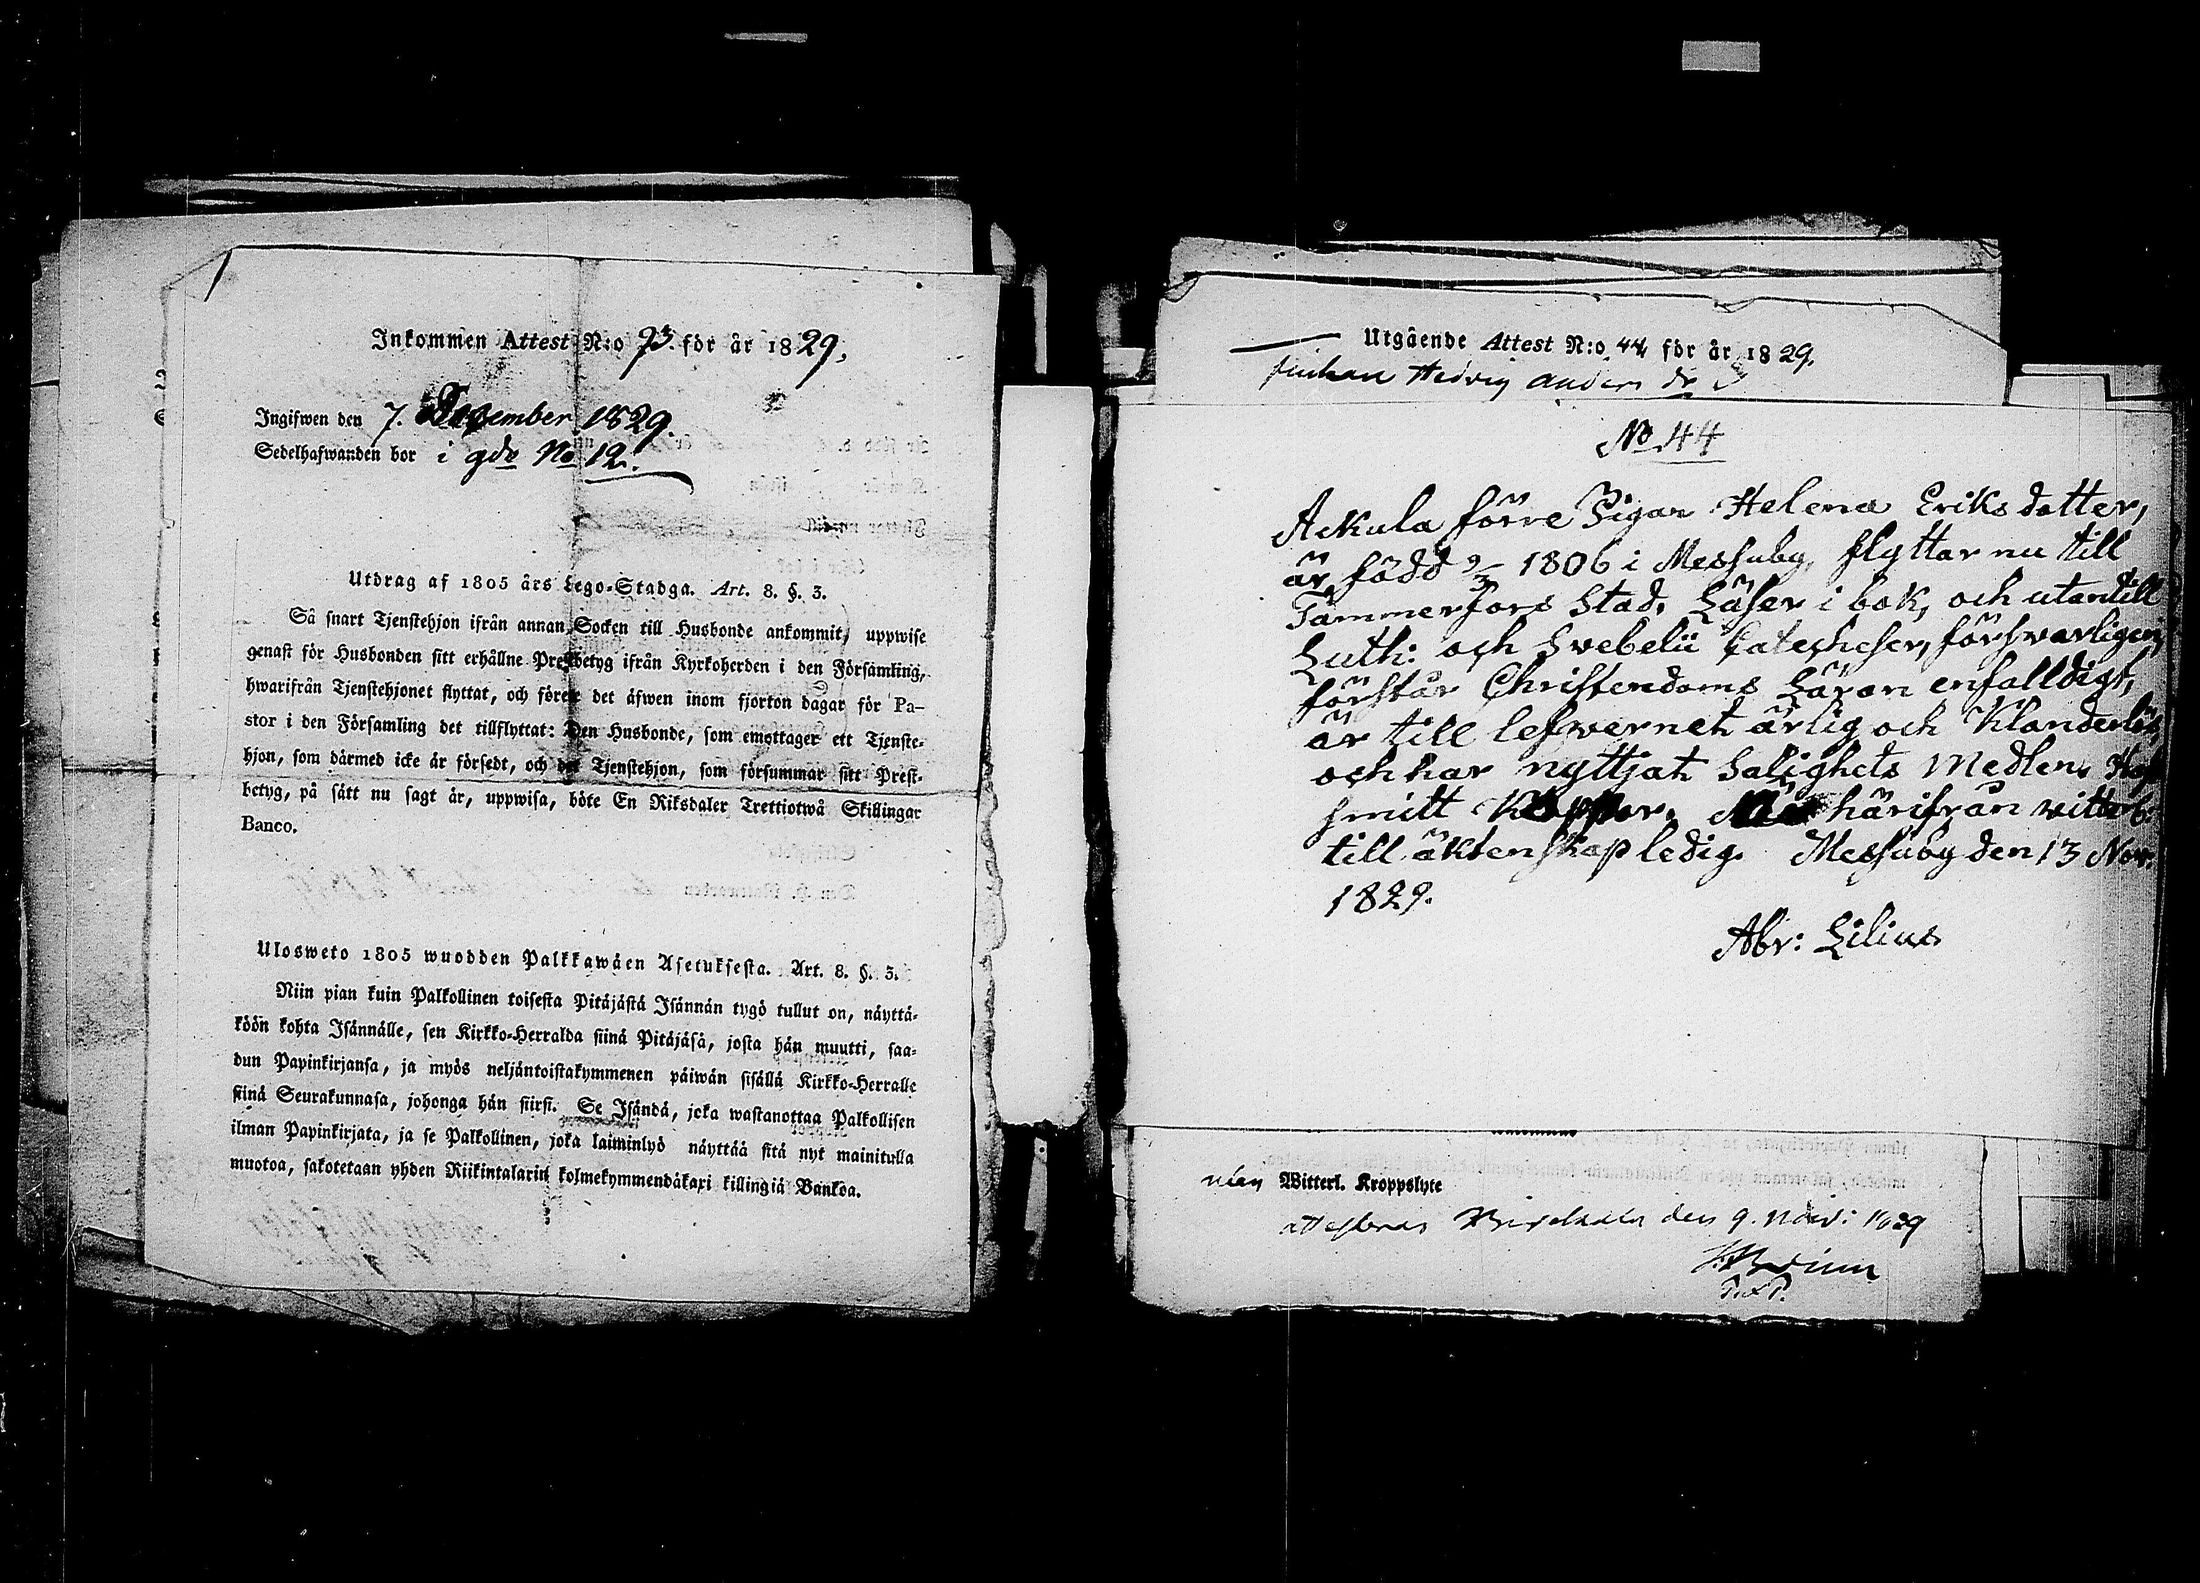 Inkommen Attest N:o 73. för år 1829.
Ingifwen den 7. December 1829.
Sedelhafwanden bor i gdn No 12.
Utdrag af 1805 års Lego-Stadga. Art. 8. §. 3.
Så snart Tjenstehjon ifrån annan Socken till Husbonde ankommit, uppwise
genast för Husbonden sitt erhållne Prestbetyg ifrån Kyrkoherden i den Församling,
hwarifrån Tjenstehjonet flyttat, och förete det äfwen inom fjorton dagar för Pa-
stor i den Församling det tillflyttat: Den Husbonde, som emottager ett Tjenste-
hjon, som därmed icke är försedt, och det Tjenstehjon, som försummar sitt Prest-
betyg, på sätt nu sagt är, uppwisa, böte En Riksdaler Trettiotwå Skillingar
Banco.
Ulosweto 1805 wuodden Palkkawäen Asetuksesta. Art. 8. §. 3.
Niin pian kuin Palkollinen toisesta Pitäjästä Isännän tygö tullut on, näyttä-
köön kohta Isännälle, sen Kirkko-Herralda siinä Pitäjäsä, josta hän muutti, saa-
dun Papinkirjansa, ja myös neljäntoistakymmenen päiwän sisällä Kirkko-Herralle
siinä Seurakunnasa, johonga hän siirsi. Se Isändä, joka wastanottaa Palkollisen
ilman Papinkirjata, ja se Palkollinen, joka laiminlyö näyttää sitä nyt mainitulla
muotoa, sakotetaan yhden Riikintalarin kolmekymmendäkaxi killingiä Bankoa.
Utgående Attest N:o 44 för år 1829.
Hedvig Anders dr
No 44
Ackula förre Pigan Helena Eriks dotter,
är född 9/3 1806 i Messuby, flyttar nu till
Tammerfors Stad. Läser i bok, och utantill
Luth: och Svebelii Catecheser, försvarligen,
förstår Christendoms Läran enfalldigt,
är till lefwernet ärlig och Klanderlös,
och har nyttjat Salighets Medlen. Haf
smitt Koppor. härifrån witterl.
till äktenskap ledig. Messuby den 13 Nov.
1829.
Abr: Lilius
Witterl. Kroppslyte
attesteras Birckala den 9. Nov: 1829